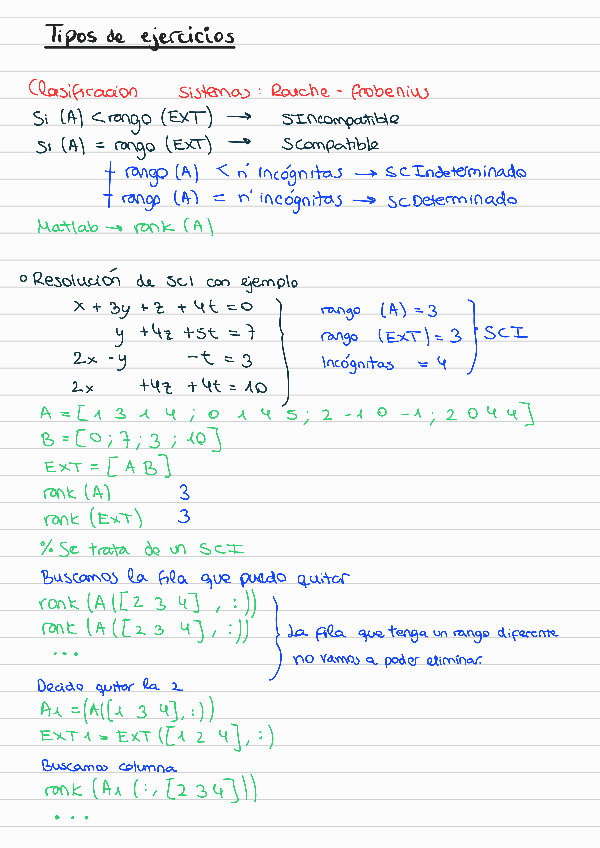 Tipos de ejercicios
Clasificacion sistemas: Rouche - frobenius
Si (A) < rango (EXT) → SIncompatible
Si (A) = rango (EXT) → SCompatible
rango (A) < nº incógnitas → SCIndeterminado
rango (A) = nº incógnitas → SCDeterminado
Matlab → rank (A)
o Resolución de SCI con ejemplo
x + 3y + z + 4t = 0
y + 4z + 5t = 7
2x - y - t = 3
2x + 4z + 4t = 10
rango (A) = 3
rango (EXT) = 3
Incógnitas = 4
SCI
A = [1 3 1 4 ; 0 1 4 5 ; 2 -1 0 -1 ; 2 0 4 4]
B = [0 ; 7 ; 3 ; 10]
EXT = [A B]
rank (A) 3
rank (EXT) 3
% Se trata de un SCI
Buscamos la fila que puedo quitar
rank (A([2 3 4] , :))
rank (A([2 3 4] , :))
...
La fila que tenga un rango diferente
no vamos a poder eliminar.
Decido quitar la 2
A1 = (A([1 3 4], :))
EXT1 = EXT([1 2 4], :)
Buscamos columna
rank (A1 (:, [2 3 4]))
...